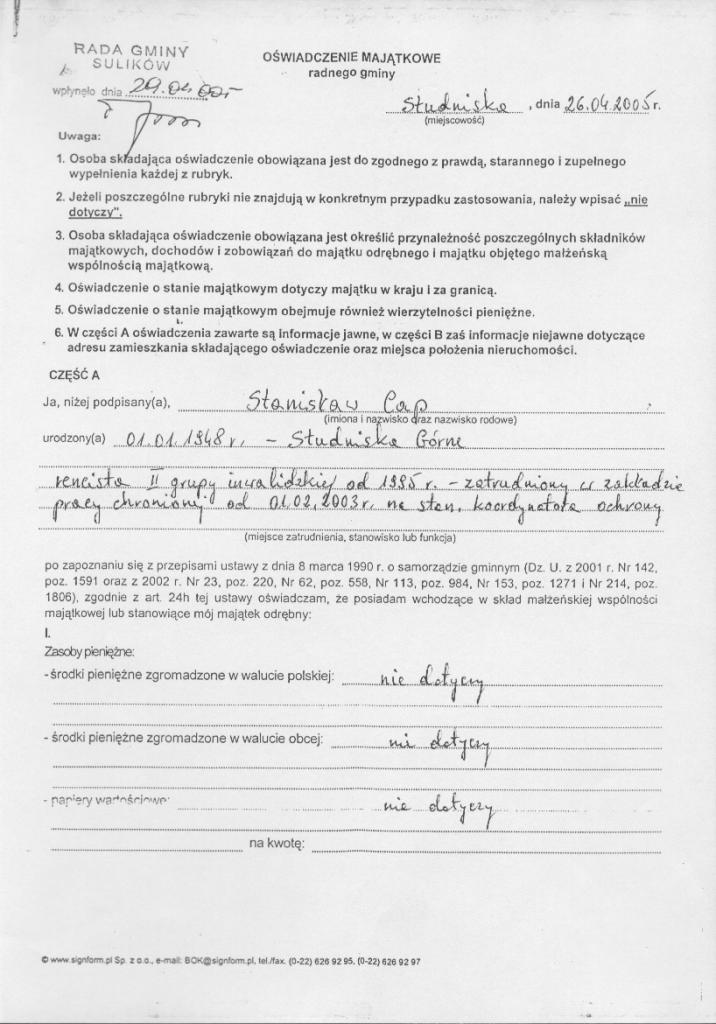 RADA GMINY
SULIKÓW
wpłynęło dnia 29.04.005
OŚWIADCZENIE MAJĄTKOWE
radnego gminy
Studniska, dnia 26.04.2005r.
(miejscowość)
Uwaga:
1. Osoba składająca oświadczenie obowiązana jest do zgodnego z prawdą, starannego i zupełnego
wypełnienia każdej z rubryk.
2. Jeżeli poszczególne rubryki nie znajdują w konkretnym przypadku zastosowania, należy wpisać „nie
dotyczy".
3. Osoba składająca oświadczenie obowiązana jest określić przynależność poszczególnych składników
majątkowych, dochodów i zobowiązań do majątku odrębnego i majątku objętego małżeńską
wspólnością majątkową.
4. Oświadczenie o stanie majątkowym dotyczy majątku w kraju i za granicą.
5. Oświadczenie o stanie majątkowym obejmuje również wierzytelności pieniężne.
6. W części A oświadczenia zawarte są informacje jawne, w części B zaś informacje niejawne dotyczące
adresu zamieszkania składającego oświadczenie oraz miejsca położenia nieruchomości.
CZĘŚĆ A
Ja, niżej podpisany(a), Stanisław Cap
(imiona i nazwisko oraz nazwisko rodowe)
urodzony(a) 01.01.1948 r. - Studniska Górne
rencista II grupy inwalidzkiej od 1995 r. - zatrudniony w zakładzie
pracy chronionej od 01.02.2003r. na stan. koordynatora ochrony
(miejsce zatrudnienia, stanowisko lub funkcja)
po zapoznaniu się z przepisami ustawy z dnia 8 marca 1990 r. o samorządzie gminnym (Dz. U. z 2001 r. Nr 142,
poz. 1591 oraz z 2002 r. Nr 23, poz. 220, Nr 62, poz. 558, Nr 113, poz. 984, Nr 153, poz. 1271 i Nr 214, poz.
1806), zgodnie z art. 24h tej ustawy oświadczam, że posiadam wchodzące w skład małżeńskiej wspólności
majątkowej lub stanowiące mój majątek odrębny:
I.
Zasoby pieniężne:
- środki pieniężne zgromadzone w walucie polskiej: nie dotyczy
- środki pieniężne zgromadzone w walucie obcej: nie dotyczy
- papiery wartościowe: nie dotyczy
na kwotę:
© www.signform.pl Sp. z o.o., e-mail: BOK@signform.pl, tel./fax. (0-22) 626 92 95, (0-22) 626 92 97